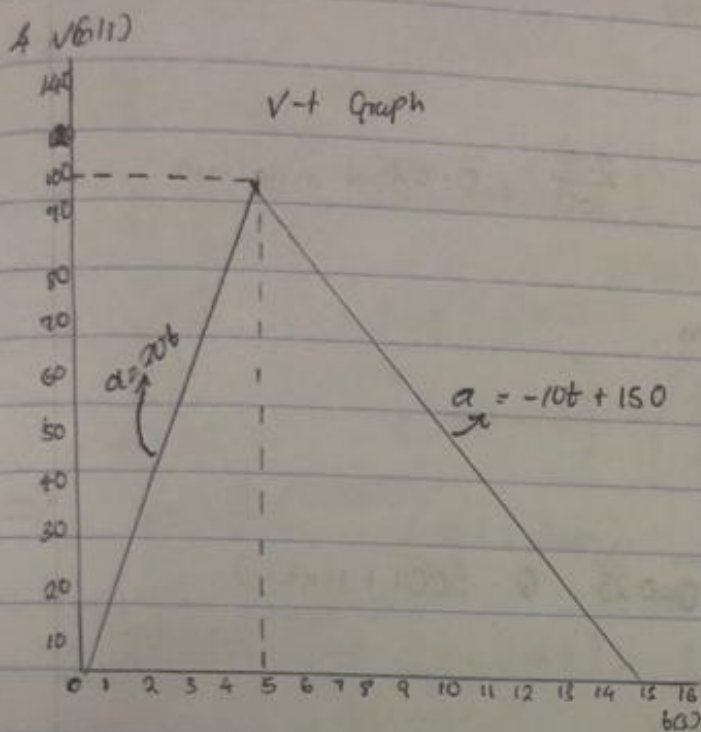 V-t Graph
140
100
90
80
70
60
50
40
30
20
10
a = 20t
a = -10t + 150
0 1 2 3 4 5 6 7 8 9 10 11 12 13 14 15 16
t(s)